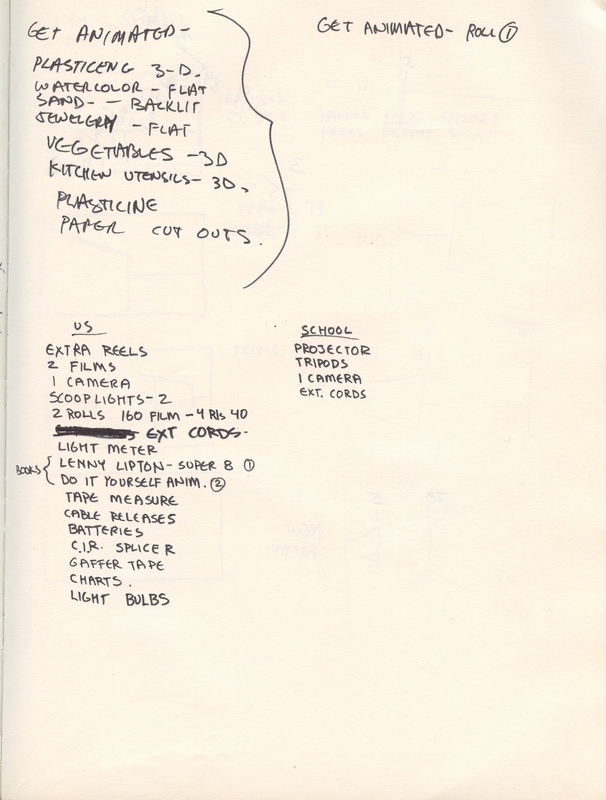 GET ANIMATED-
GET ANIMATED- ROLL ①
PLASTICENG 3-D.
WATERCOLOR - FLAT
SAND- - BACKLIT
JEWELERY - FLAT
VEGETABLES - 3D
KITCHEN UTENSILS - 3D.
PLASTICINE
PAPER CUT OUTS.
US
EXTRA REELS
2 FILMS
1 CAMERA
SCOOPLIGHTS - 2
2 ROLLS 160 FILM - 4 Rls 40
EXT CORDS-
LIGHT METER
BOOKS { LENNY LIPTON - SUPER 8 ①
DO IT YOURSELF ANIM. ②
TAPE MEASURE
CABLE RELEASES
BATTERIES
C.I.R. SPLICER
GAFFER TAPE
CHARTS.
LIGHT BULBS
SCHOOL
PROJECTOR
TRIPODS
1 CAMERA
EXT. CORDS